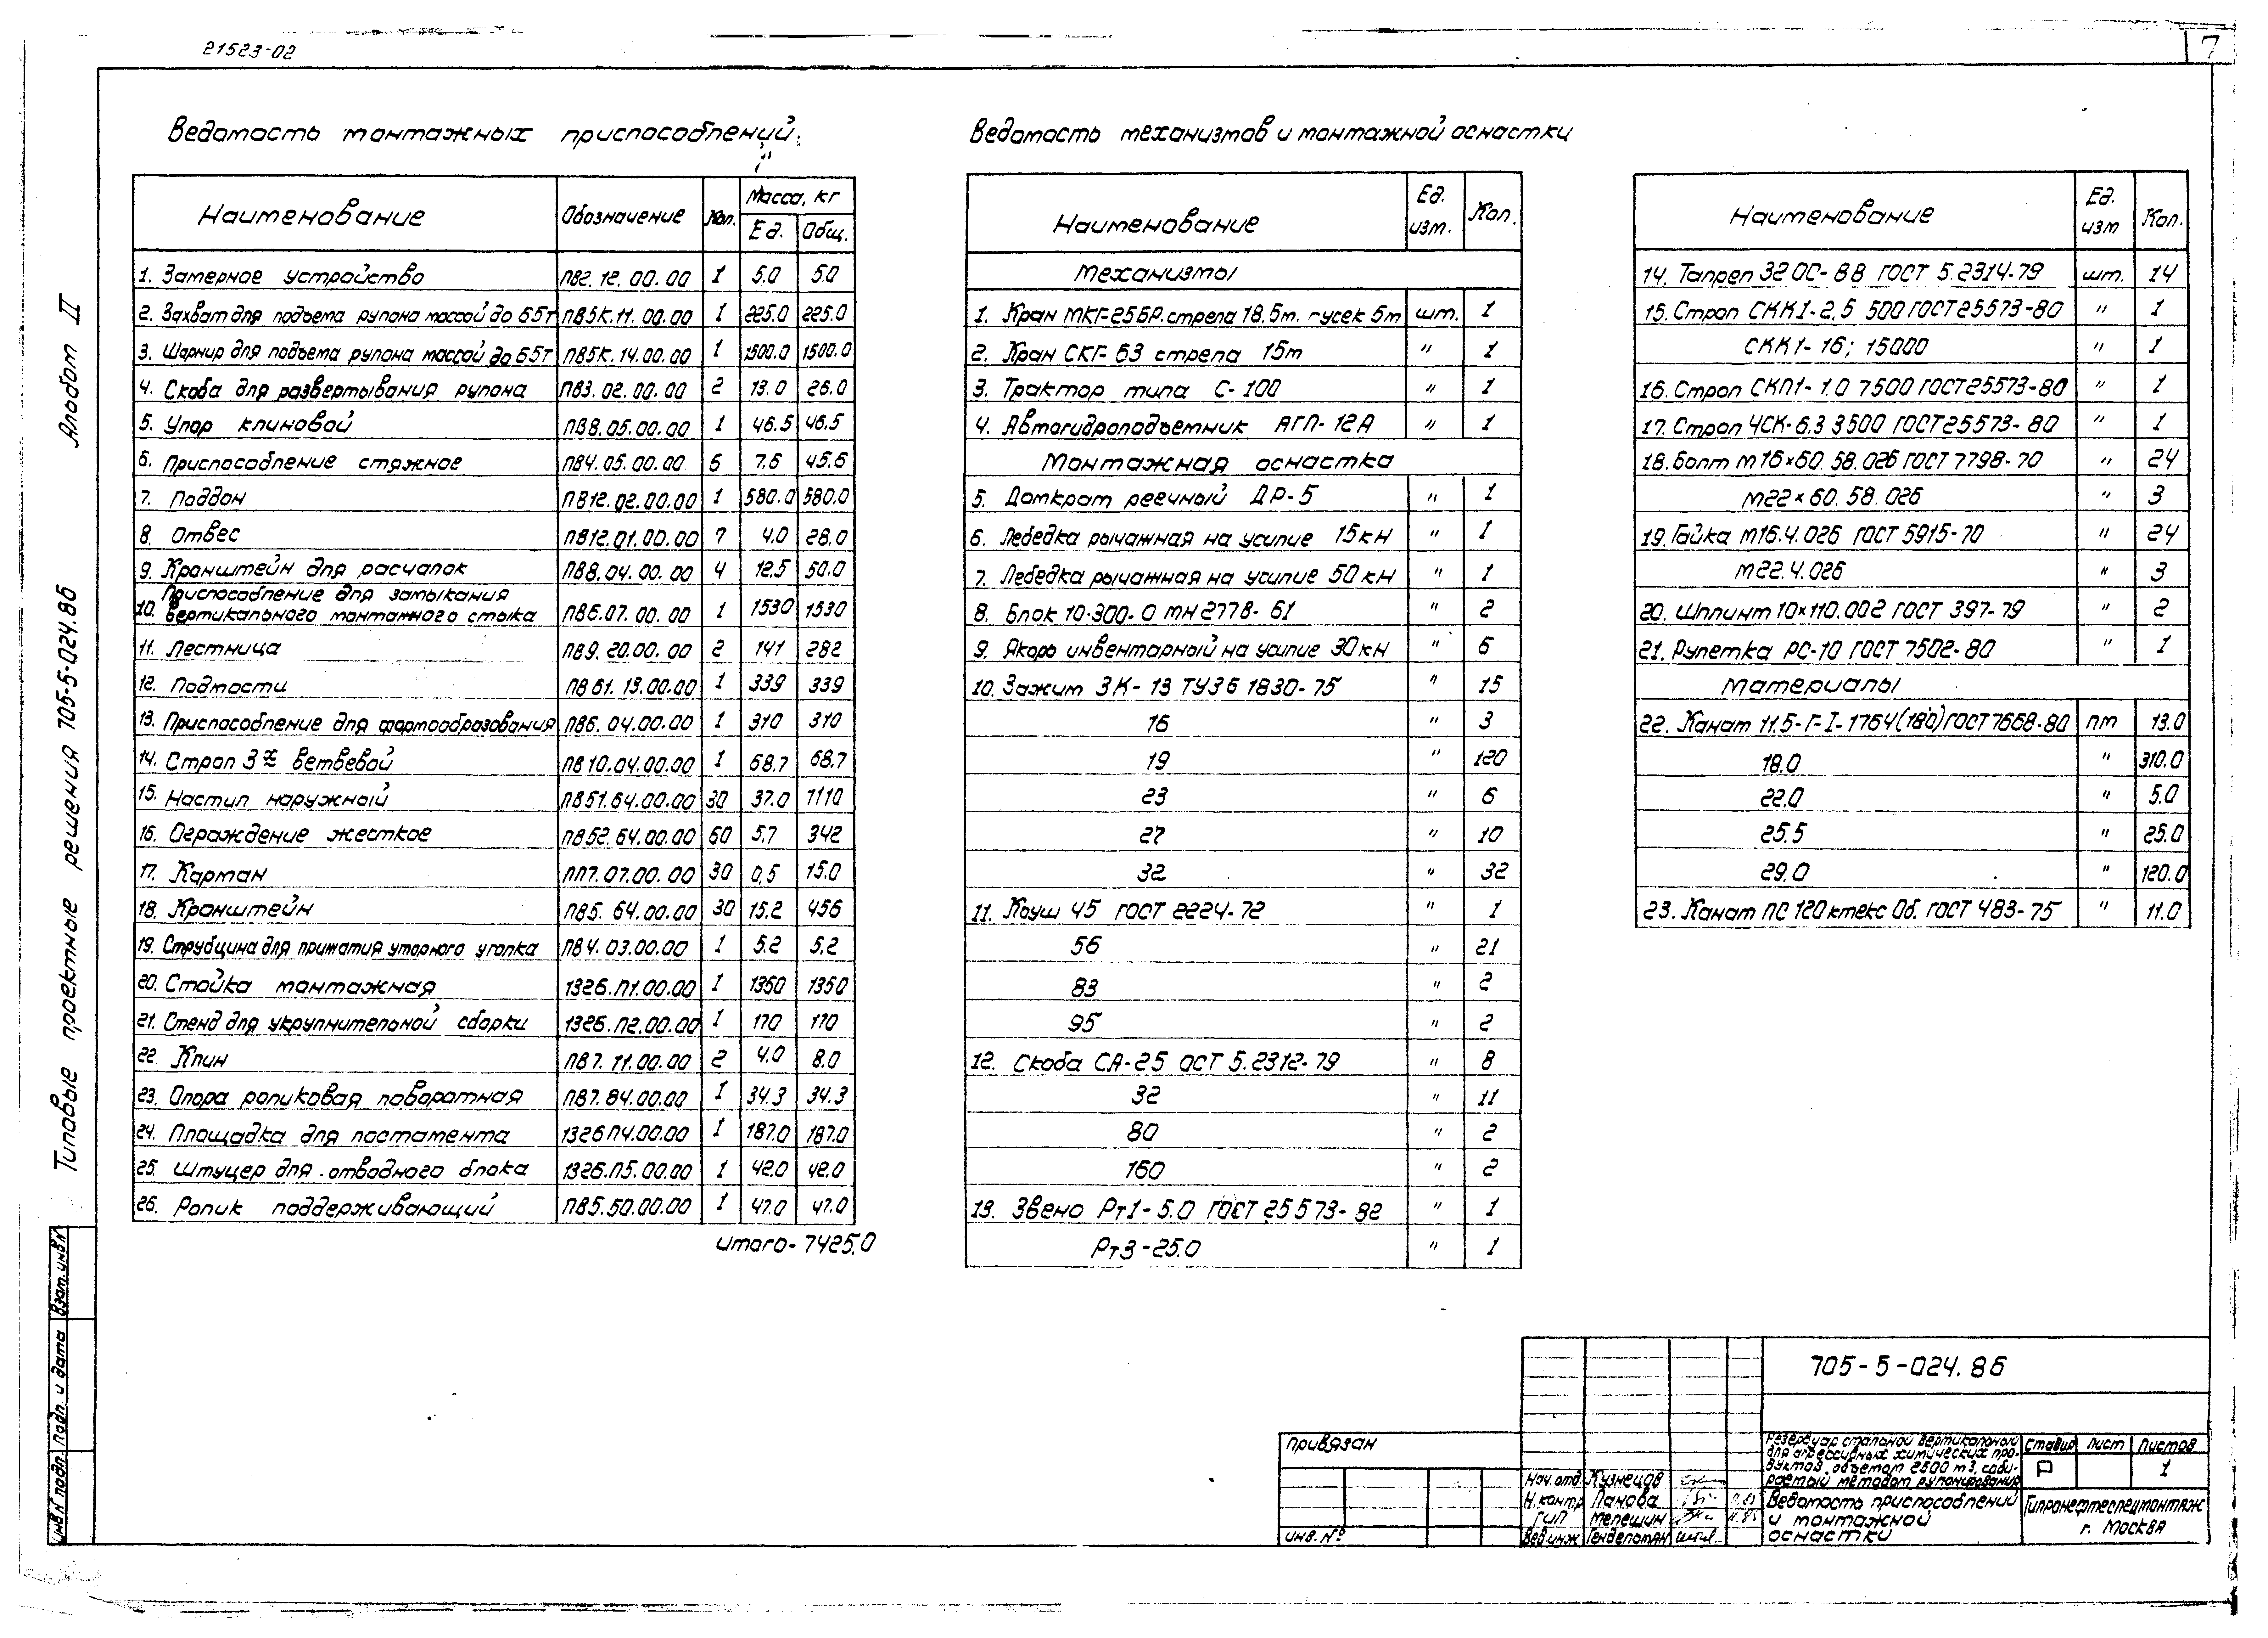 21523-02
7
Альбом II
Типовые проектные решения 705-5-024.86
Ведомость монтажных приспособлений.
Наименование Обозначение Кол. Масса, кг
Ед. Общ.
1. Замерное устройство П82.12.00.00 1 5.0 5.0
2. Захват для подъема рулона массой до 65т П85К.11.00.00 1 225.0 225.0
3. Шарнир для подъема рулона массой до 65т П85К.14.00.00 1 1500.0 1500.0
4. Скоба для развертывания рулона П83.02.00.00 2 13.0 26.0
5. Упор клиновой П88.05.00.00 1 46.5 46.5
6. Приспособление стяжное П84.05.00.00 6 7.6 45.6
7. Поддон П812.02.00.00 1 580.0 580.0
8. Отвес П812.01.00.00 7 4.0 28.0
9. Кронштейн для расчалок П88.04.00.00 4 12.5 50.0
10. Приспособление для замыкания
вертикального монтажного стыка П86.07.00.00 1 1530 1530
11. Лестница П89.20.00.00 2 141 282
12. Подмости П861.13.00.00 1 339 339
13. Приспособление для формообразования П86.04.00.00 1 310 310
14. Строп 3х ветвевой П810.04.00.00 1 68.7 68.7
15. Настил наружный П851.64.00.00 30 37.0 1110
16. Ограждение жесткое П852.64.00.00 60 5.7 342
17. Карман ПП7.07.00.00 30 0,5 15.0
18. Кронштейн П85.64.00.00 30 15.2 456
19. Струбцина для прижатия упорного уголка П84.03.00.00 1 5.2 5.2
20. Стойка монтажная 1326.П1.00.00 1 1350 1350
21. Стенд для укрупнительной сборки 1326.П2.00.00 1 170 170
22. Клин П87.11.00.00 2 4.0 8.0
23. Опора роликовая поворотная П87.84.00.00 1 34.3 34.3
24. Площадка для постамента 1326П4.00.00 1 187.0 187.0
25. Штуцер для отводного блока 1326.П5.00.00 1 42.0 42.0
26. Ролик поддерживающий П85.50.00.00 1 47.0 47.0
Итого- 7425.0
Ведомость механизмов и монтажной оснастки
Наименование Ед. изм. Кол.
Механизмы
1. Кран МКГ-25БР.стрела 18.5м. гусек 5м шт. 1
2. Кран СКГ-63 стрела 15м " 1
3. Трактор типа С-100 " 1
4. Автогидроподъемник АГП-12А " 1
Монтажная оснастка
5. Домкрат реечный ДР-5 " 1
6. Лебедка рычажная на усилие 15кН " 1
7. Лебедка рычажная на усилие 50кН " 1
8. Блок 10-300-0 МН 2778-61 " 2
9. Якорь инвентарный на усилие 30кН " 6
10. Зажим ЗК-13 ТУ36 1830-75 " 15
16 " 3
19 " 120
23 " 6
27 " 10
32 " 32
11. Коуш 45 ГОСТ 2224-72 " 1
56 " 21
83 " 2
95 " 2
12. Скоба СА-25 ОСТ 5.2312-79 " 8
32 " 11
80 " 2
160 " 2
13. Звено Рт1-5.0 ГОСТ 25573-82 " 1
Рт3-25.0 " 1
Наименование Ед. изм Кол.
14. Талреп 32 ОС-88 ГОСТ 5.2314-79 шт. 14
15. Строп СКК1-2,5 500 ГОСТ 25573-80 " 1
СКК1-16; 15000 " 1
16. Строп СКП1-1.0 7500 ГОСТ 25573-80 " 1
17. Строп УСК-6.3 3500 ГОСТ 25573-80 " 1
18. Болт М16×60.58.026 ГОСТ 7798-70 " 24
М22×60.58.026 " 3
19. Гайка М16.4.026 ГОСТ 5915-70 " 24
М22.4.026 " 3
20. Шплинт 10×110.002 ГОСТ 397-79 " 2
21. Рулетка РС-10 ГОСТ 7502-80 " 1
Материалы
22. Канат 11.5-Г-I-1764(180)ГОСТ 7668-80 пм 13.0
18.0 " 310.0
22.0 " 5.0
25.5 " 25.0
29.0 " 120.0
23. Канат ПС 120ктекс Об. ГОСТ 483-75 " 11.0
Инв.N подл. Подп. и дата Взам.инв.N
Привязан
Инв. №
705-5-024.86
Нач.отд Кузнецов
Н.контр Панова
ГИП Мелешин
Вед.инж Гендельман
Резервуар стальной вертикальный
для агрессивных химических про-
дуктов, объемом 2500 м3, соби-
раемый методом рулонирования
Ведомость приспособлений
и монтажной
оснастки
Стадия Лист Листов
Р 1
Гипронефтеспецмонтаж
г. Москва